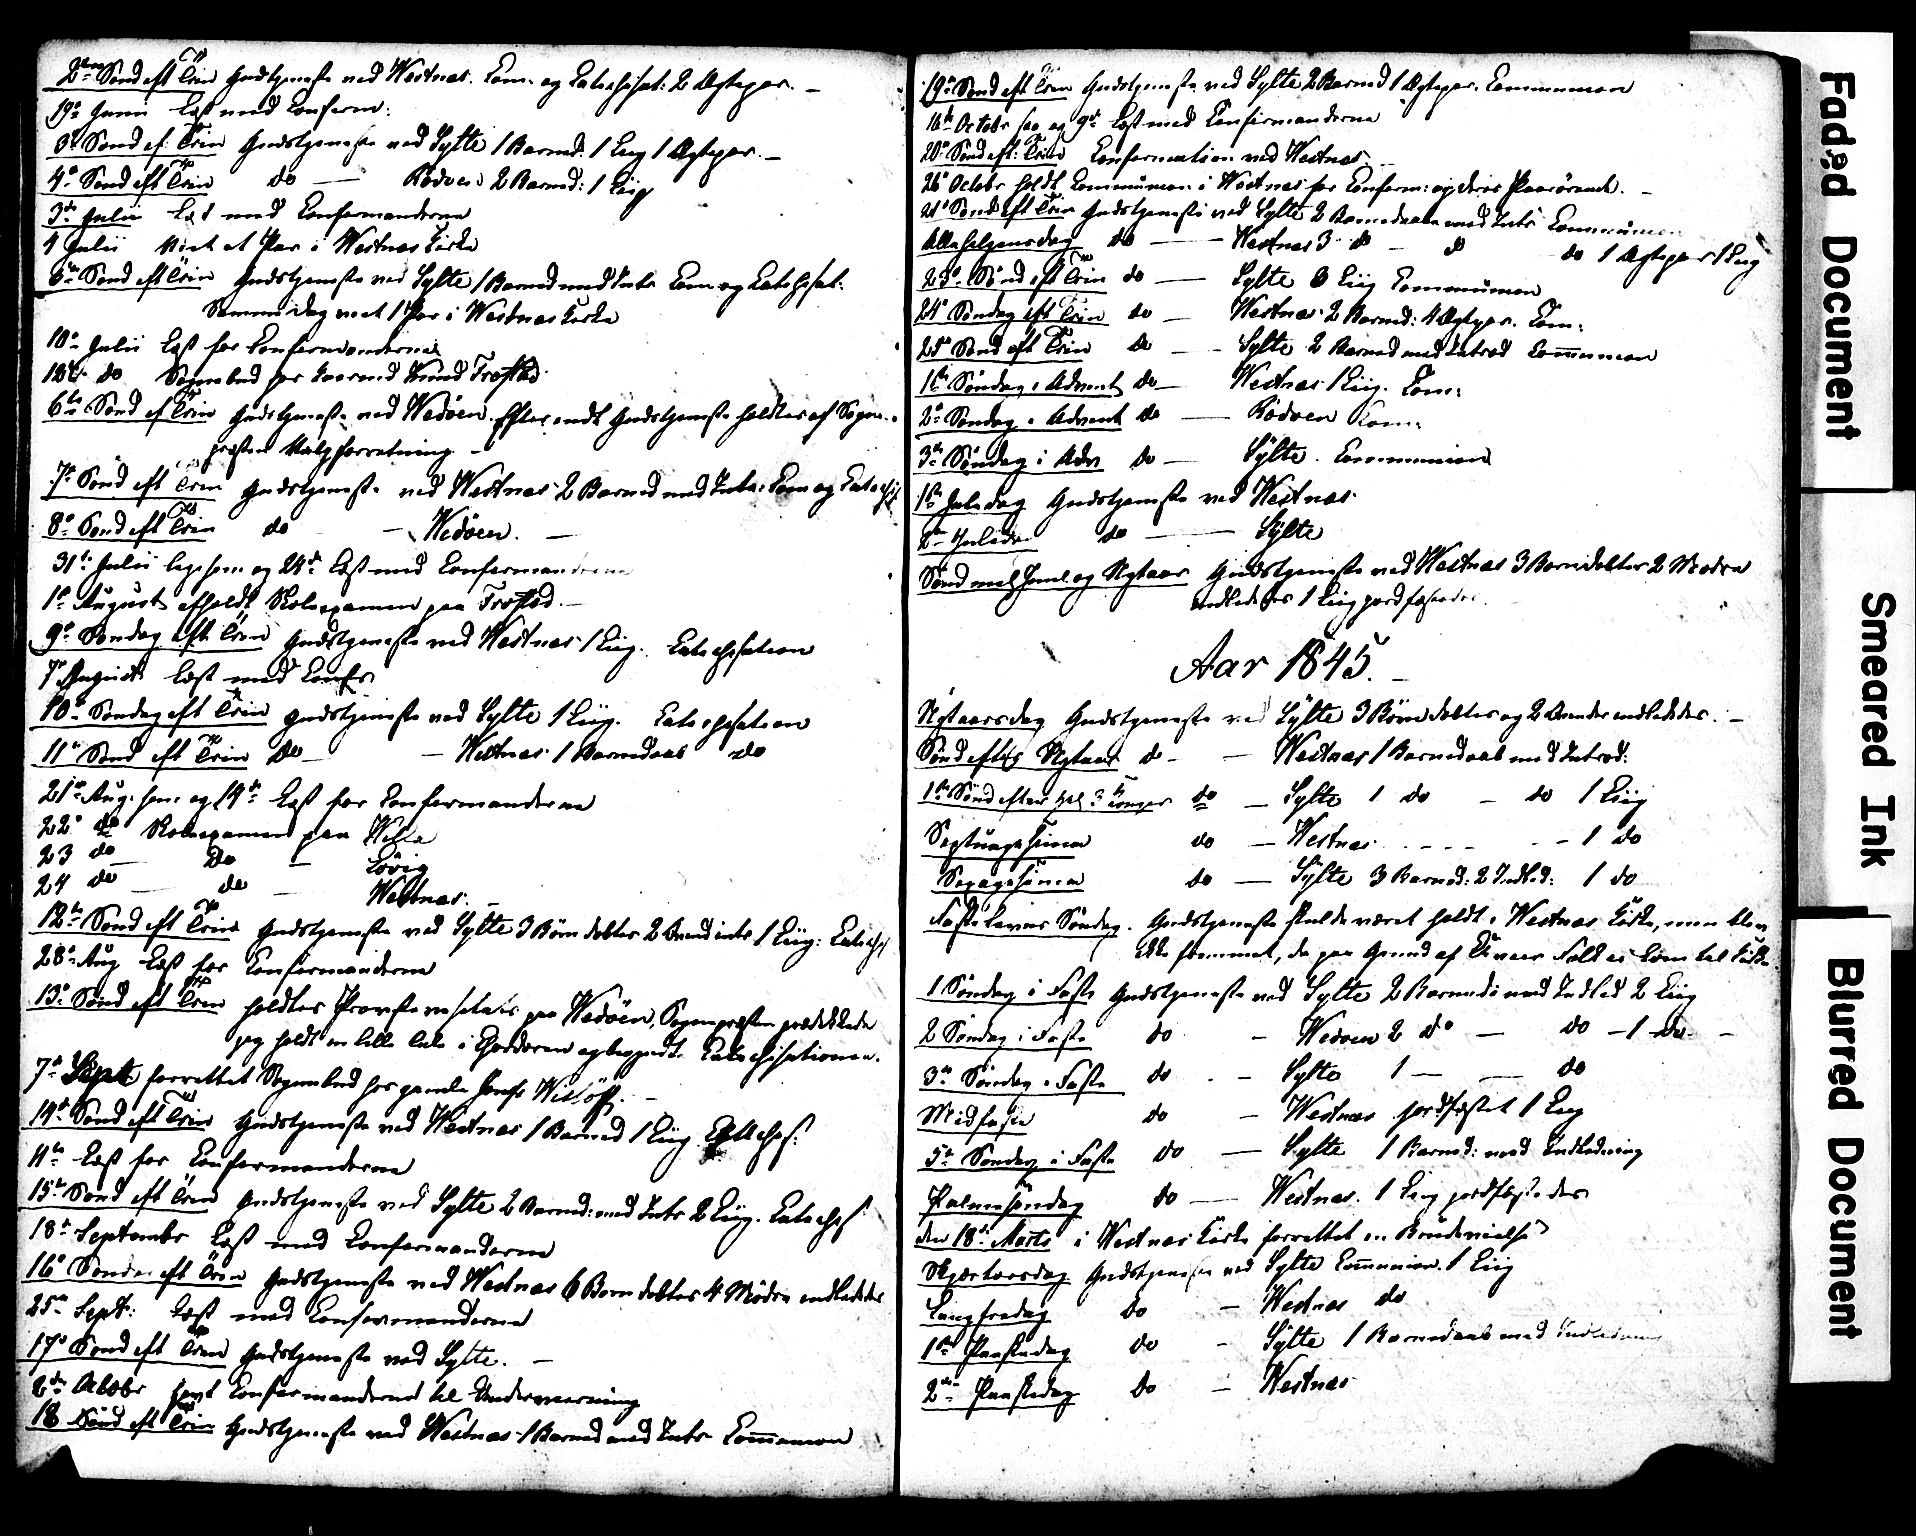 2den Sønd eft Trin Gudstjeneste ved Westnæs. Com. og Catechisat: 2 Ægtepar. —
19de Junii Læst med Conferm:
3die Sønd ef: Trin Gudstjeneste ved Sylte 1 Barned. 1 Liig 1 Ægtepar. —
4de Sønd eft Trin do — Rødven 2 Barned: 1 Liig
3die Julii Læst med Confermanderne
4 Julii viet et Par i Westnæs Kirke
5te Sønd eft Trin Gudstjeneste ved Sylte 1 Barned med Intr Com og Catechisat:
Samme Dag viet 1 Par i Westnæs Kirke
10de Julii Læst for Confermanderne
12te do Sognebud hos Knud Trohstad
6te Sønd ef Trin Gudstjeneste ved Wedøen. Efter endt Gudstjeneste holdtes af Sogne-
præsten Valgforretning —
7de Sønd eft Trin Gudstjeneste ved Westnæs 2 Barned med Intr: Com og Catechis
8de Sønd eft Trin do — Wedøen. —
31te Julii ligesom og 24de Læst med Confermanderne
1ste August afholdt Skoleexamen paa Trohstad. —
9de Søndag eft Trin Gudstjeneste ved Westnæs 1 Liig. Catechisation
7de August Læst med Confr
10de Søndag eft Trin Gudstjeneste ved Sylte 1 Liig. Catechisation
11te Sønd eft Trin do — Westnæs 1 Barnedaab do
21de Aug. som og 14de Læst for Confermanderne
22de do Skoleexamen paa
23 do — Do —
24 do — do — Westnæs. —
12te Sønd eft Trin Gudstjeneste ved Sylte 3 Børn døbtes 2 intr 1 Liig: Catechs
28de Aug Læst for Confermanderne
13de Sønd eft Trin holdtes Provstevisitats paa Wedøen, Sognepræsten prædikede
jeg holdt en lille Tale i Chordøren og begyndte Catechisationen.
7de Sept forrettet Sognebud hos gamle
14de Sønd eft Trin Gudstjeneste ved Westnæs 1 Barned 1 Liig. Catechs:
11te Læst for Confermanderne
15de Sønd eft Trin Gudstjeneste ved Sylte 2 Barned: med Intr 2 Liig. Catechs
18de Septembr Læst med Confermanderne
16de Søndag eft Trin Gudstjeneste ved Westnæs 6 Børn døbtes 4 Mødre indledtes
25de Sept: Læst med Confermanderne
17de Sønd eft Trin Gudstjeneste ved Sylte. —
2den Octobr havt Confermanderne til Underviisning
18 Sønd eft Trin Gudstjeneste ved Westnæs 1 Barned med Intr Communion
19de Sønd eft Trin Gudstjeneste ved Sylte 2 Barned 1 Ægtepar. Communion
16de Octobr saa og 9de Læst med Confirmanderne
20de Sønd eft: Trin Confermation ved Westnæs. —
26de Octobr holdt Communion i Westnæs for Conferm: og deres Paarørende. —
21de Sønd eft Trin Gudstjeneste ved Sylte 2 Barnedaab med Intr Communion
Allehelgensdag do — Westnæs 3 do — do do 1 Ægtepar 1 Liig
23de Sønd eft Trin do — Sylte 3 Liig Communion
24de Søndag eft Trin do — Westnæs 2 Barned: 4 Ægtepar. Com:
25de Sønd eft Trin do — Sylte 2 Barned med Introd Communion
1ste Søndag i Advent do — Westnæs 1 Liig. Com:
2den Søndag i Advent do — Rødven Kom:
3die Søndag i Adv do — Sylte. Communion
1ste Juledag Gudstjeneste ved Westnæs
2den Juledag do — Sylte
Sønd mel Juul og Nytaar Gudstjeneste ved Westnæs 3 Børn døbtes 2 Mødre
indledtes 1 Liig jordfæstedes.
Aar 1845. —
Nytaarsdag Gudstjeneste ved Sylte 3 Børn døbtes og 2 Qvinder indledtes. —
Sønd efter Nytaar do — Westnæs 1 Barnedaab med Introd:
1ste Sønd efter Hel. 3 Konger do — Sylte 1 do — do 1 Liig
Septuagesima do — Westnæs — 1 do
Sexagesima do — Sylte 3 Barned: 2 Indled: 1 do
Fastelavns Søndag. Gudstjeneste skulde været holdt i Westnæs Kirke, men blev
ikke fremmet, da paa Grund af Uveir Folk ei kom til Kirke
1. Søndag i Faste Gudstjeneste ved Sylte 2 Barned: med Indled 2 Liig
2 Søndag i Faste do — Wedøen 2 do — do — 1 do. —
3die Søndag i Faste do — Sylte 1 — — do
Midfaste do — Westnæs jordfæstet 1 Liig
5te Søndag i Faste do — Sylte 1 Barned: med Indledning
Palmesøndag do — Westnæs. 1 Liig jordfæstedes
den 18de Marts i Westnæs Kirke forrettet en Brudevielse
Skjærtorsdag Gudstjeneste ved Sylte Communion. 1 Liig
Langfredag do — Westnæs do
1ste Paaskedag do — Sylte 1 Barnedaab med Indledning
2den Paaskedag do — Westnæs
Faded Document
Smeared Ink
Blurred Document